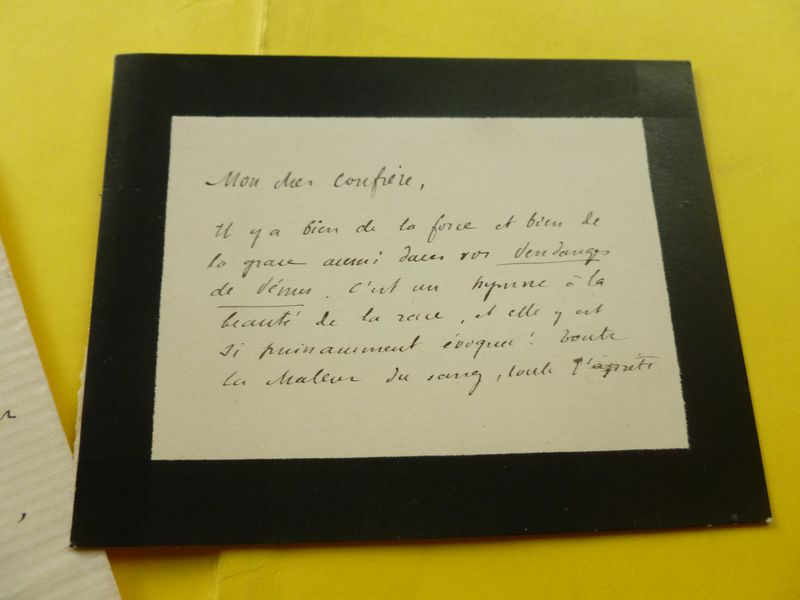 Mon cher confrère,
Il y a bien de la force et bien de
la grace aussi dans vos Vendanges
de Vénus. C'est un hymne à la
beauté de la race, et elle y est
si puissamment évoquée! Toute
la chaleur du sang, toute l'âpreté